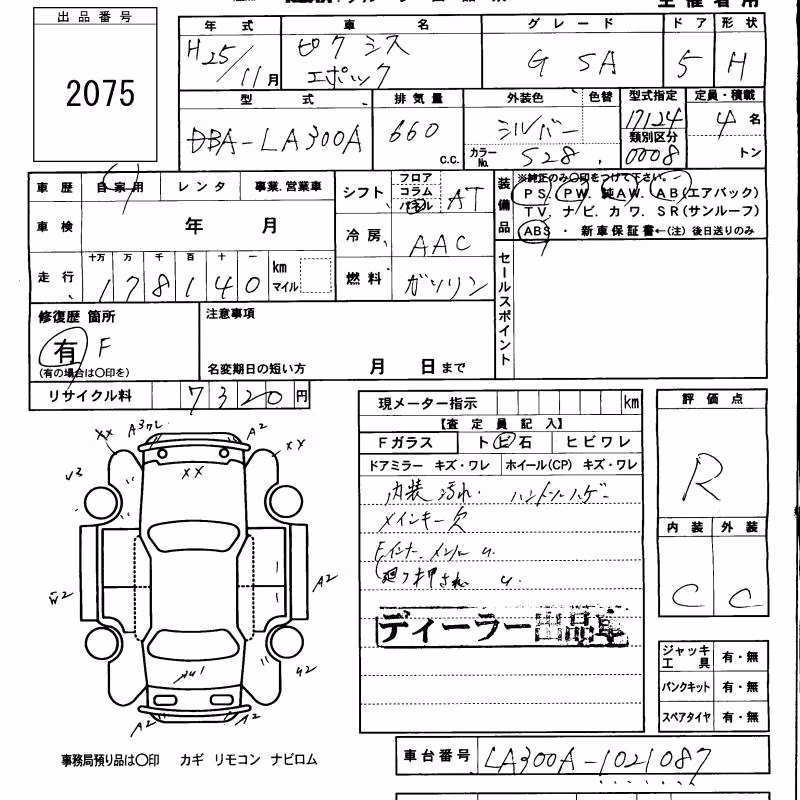 出品番号
2075
年式 車名 グレード ドア 形状
H25/11月 ピクシス エポック G SA 5 H
型式 排気量 外装色 色替 型式指定 定員・積載
DBA-LA300A 660 C.C. シルバー 17124 4名
カラーNo. S28 類別区分 0008 トン
車歴 自家用 レンタ 事業.営業車
シフト フロア コラム パネル AT
装備品
※純正のみ〇印をつけて下さい。
PS. PW. 純AW. AB(エアバック)
TV. ナビ. カワ. SR(サンルーフ)
ABS ・ 新車保証書←(注) 後日送りのみ
車検 年 月
冷房 AAC
走行 十万 万 千 百 十 一
178140 km マイル
燃料 ガソリン
セールスポイント
修復歴 箇所
有 F
(有の場合は〇印を)
注意事項
名変期日の短い方 月 日まで
リサイクル料 7320 円
現メーター指示 km
【査定員記入】
Fガラス ト ビ 石 ヒビワレ
ドアミラー キズ・ワレ ホイール(CP) キズ・ワレ
内装 汚れ.
メインキー欠
評価点
R
内装 外装
C C
ディーラー出品車
XX A2 XX
XX
A2
W2
A2
A2
ジャッキ 工具 有・無
パンクキット 有・無
スペアタイヤ 有・無
事務局預り品は〇印 カギ リモコン ナビロム
車台番号 LA300A-1021087